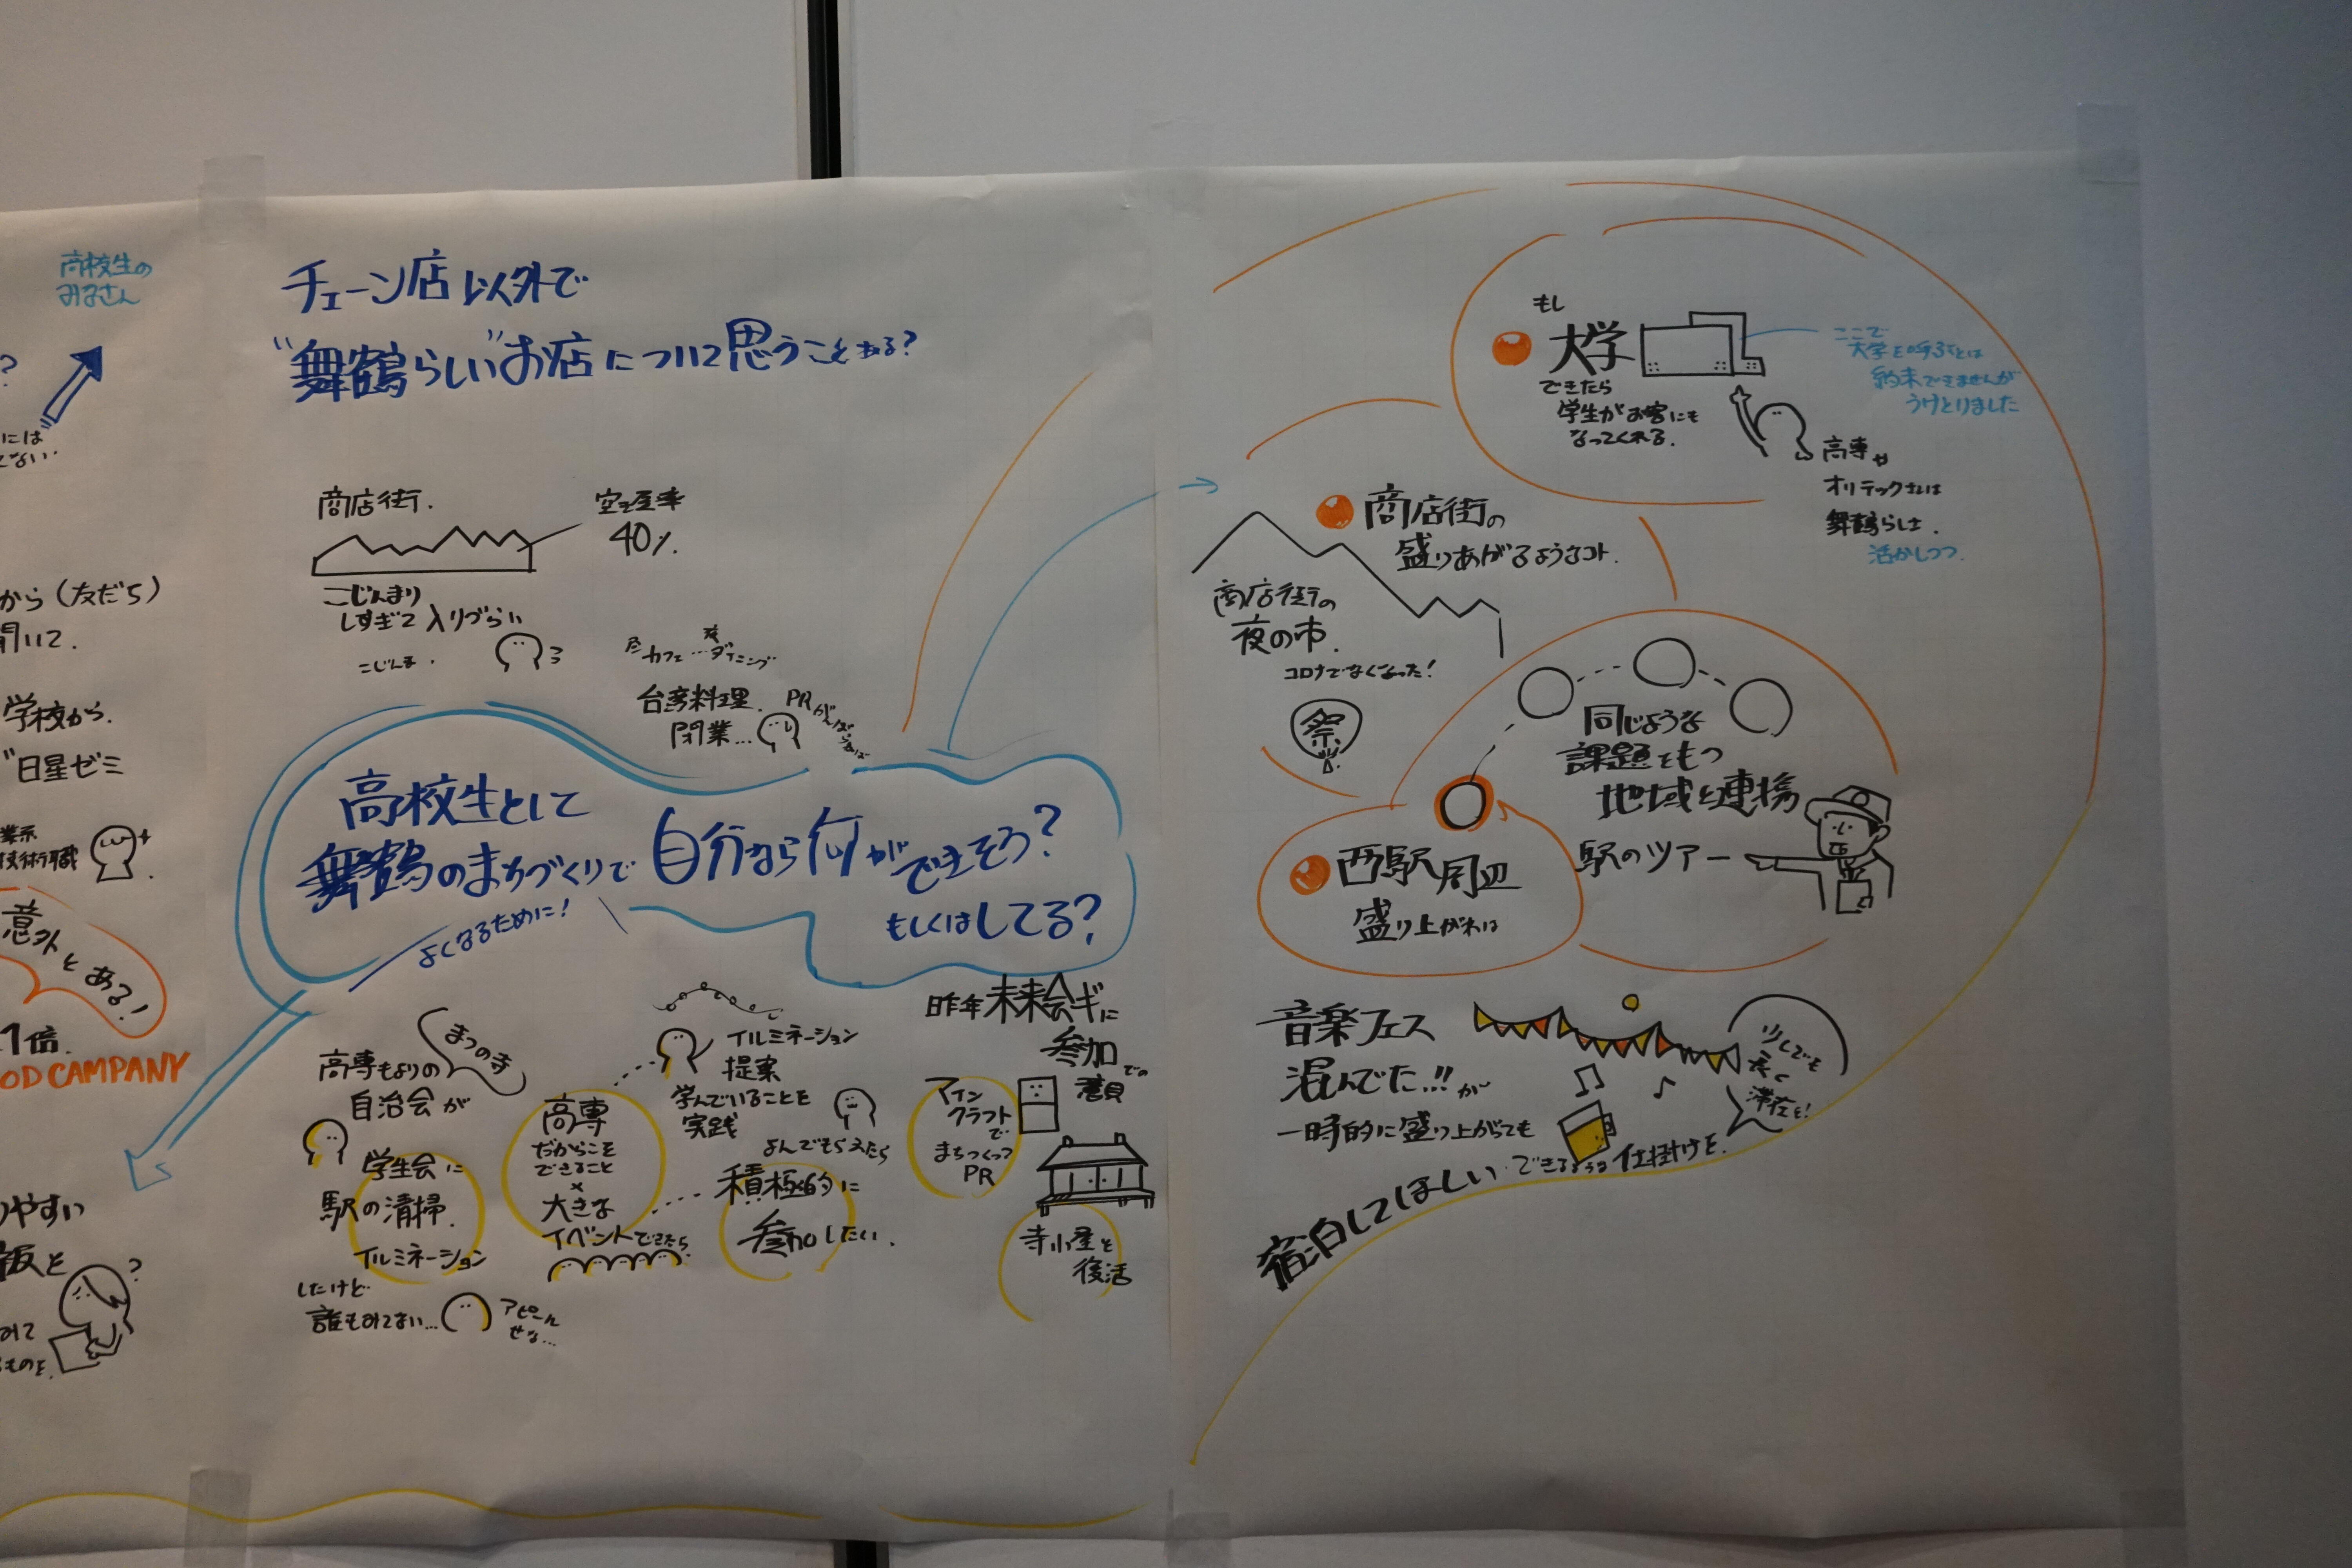 高校生の
みなさん
?
には
ない.
から(友だち)
聞いて.
学校から.
"日星ゼミ
業系
技術職
意外とある!
1倍.
OD CAMPANY
りやすい
?
みて
ものを.
チェーン店以外で
"舞鶴らしい"お店について思うことある?
商店街.
空き屋率
40%.
こじんまり
しすぎて入りづらい
こじんま.
昼カフェ…夜ダイニング
台湾料理.
閉業…
PRがんばらねば
高校生として
舞鶴のまちづくりで
自分なら何ができそう?
もしくはしてる?
よくなるために!
高専もよりの
まつの寺
自治会が
学生会に
駅の清掃.
イルミネーション
したけど
誰もみてない…
アピールせな…
高専
だからこそ
できること
×
大きな
イベントできたら.
イルミネーション
提案
学んでいることを
実践
よんでもらえたら
積極的に
参加したい.
昨年未来会ギに
参加での
マイン
クラフト
で
まちつくって
PR
寺小屋を
復活
もし
大学
できたら
学生がお客にも
なってくれる.
ここで
大学を呼ぶとは
約束できませんが
うけとりました
高専や
オリテックさんは
舞鶴らしさ.
活かしつつ
商店街の
盛りあがるようなコト.
商店街の
夜の市.
コロナでなくなった!
祭
同じような
課題をもつ
地域と連携
駅のツアー
西駅周辺
盛り上がれば
音楽フェス
混んでた..!!が~
一時的に盛り上がっても
少しでも
長く
滞在を!
宿泊してほしい・できるような仕掛けを.